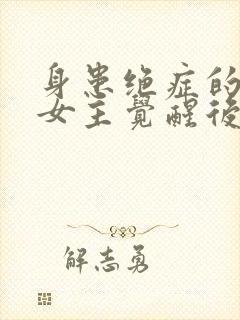 身患绝症的
女主覺醒後
解志勇